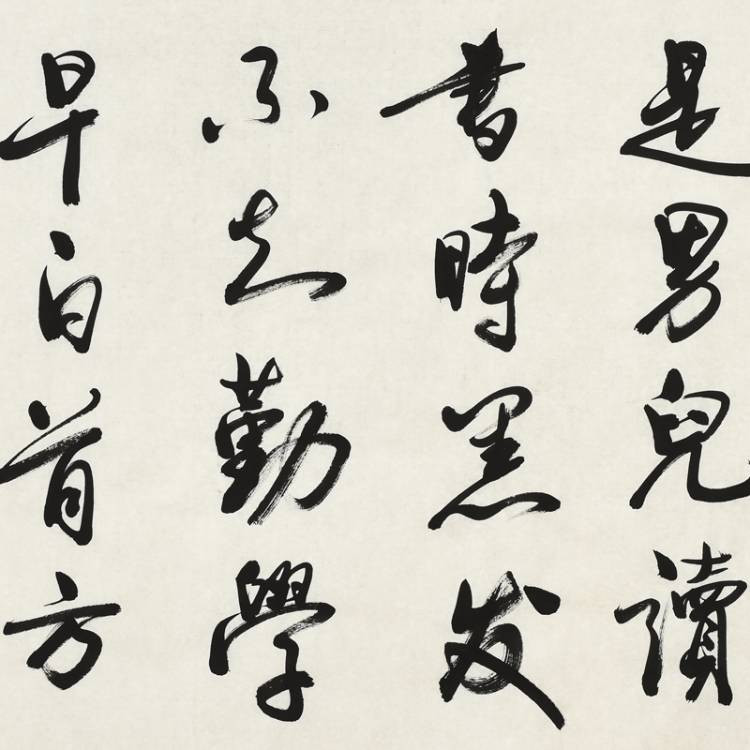 是男兒讀
書時黑发
不知勤學
早白首方